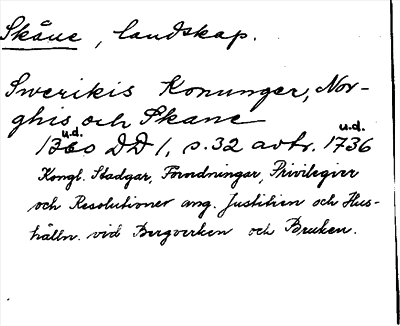 Skåne, landskap.
Swerikis Konunger, Nor-
ghis och Skane
u.d. u.d.
1360 DD 1, s.32 avtr. 1736
Kongl. Stadgar, Förordningar, Privilegier
och Resolutioner ang. Justitien och Hus-
hålln. vid Bergverken och Bruken.